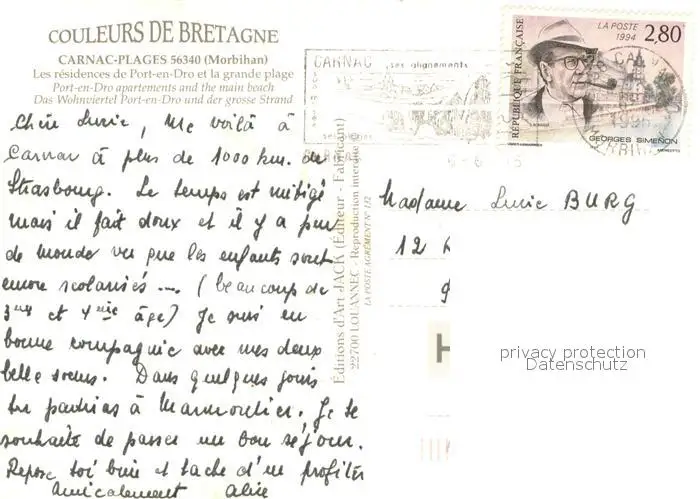 COULEURS DE BRETAGNE
CARNAC-PLAGES 56340 (Morbihan)
Les résidences de Port-en-Dro et la grande plage
Port-en-Dro apartements and the main beach
Das Wohnviertel Port-en-Dro und der grosse Strand
Chère Lucie, Me voilà à
Carnac à plus de 1000 km. de
Strasbourg. Le temps est mitigé
mais il fait doux et il y a peu
de monde vu que les enfants sont
encore scolarisés ... (beaucoup de
3me et 4me âge) Je suis en
bonne compagnie avec mes deux
belle sœurs. Dans quelques jours
tu partiras à Marmoutier. Je te
souhaite de passer un bon séjour.
Repose toi bien et tache d'en profiter
Amicalement Alice
Éditions d'Art JACK (Éditeur - Fabricant)
22700 LOUANNEC - Reproduction interdite
LA POSTE AGRÉMENT N° 112
CARNAC ses alignements
RÉPUBLIQUE FRANÇAISE
LA POSTE
1994
2,80
GEORGES SIMENON
Madame Lucie BURG
12
privacy protection
Datenschutz